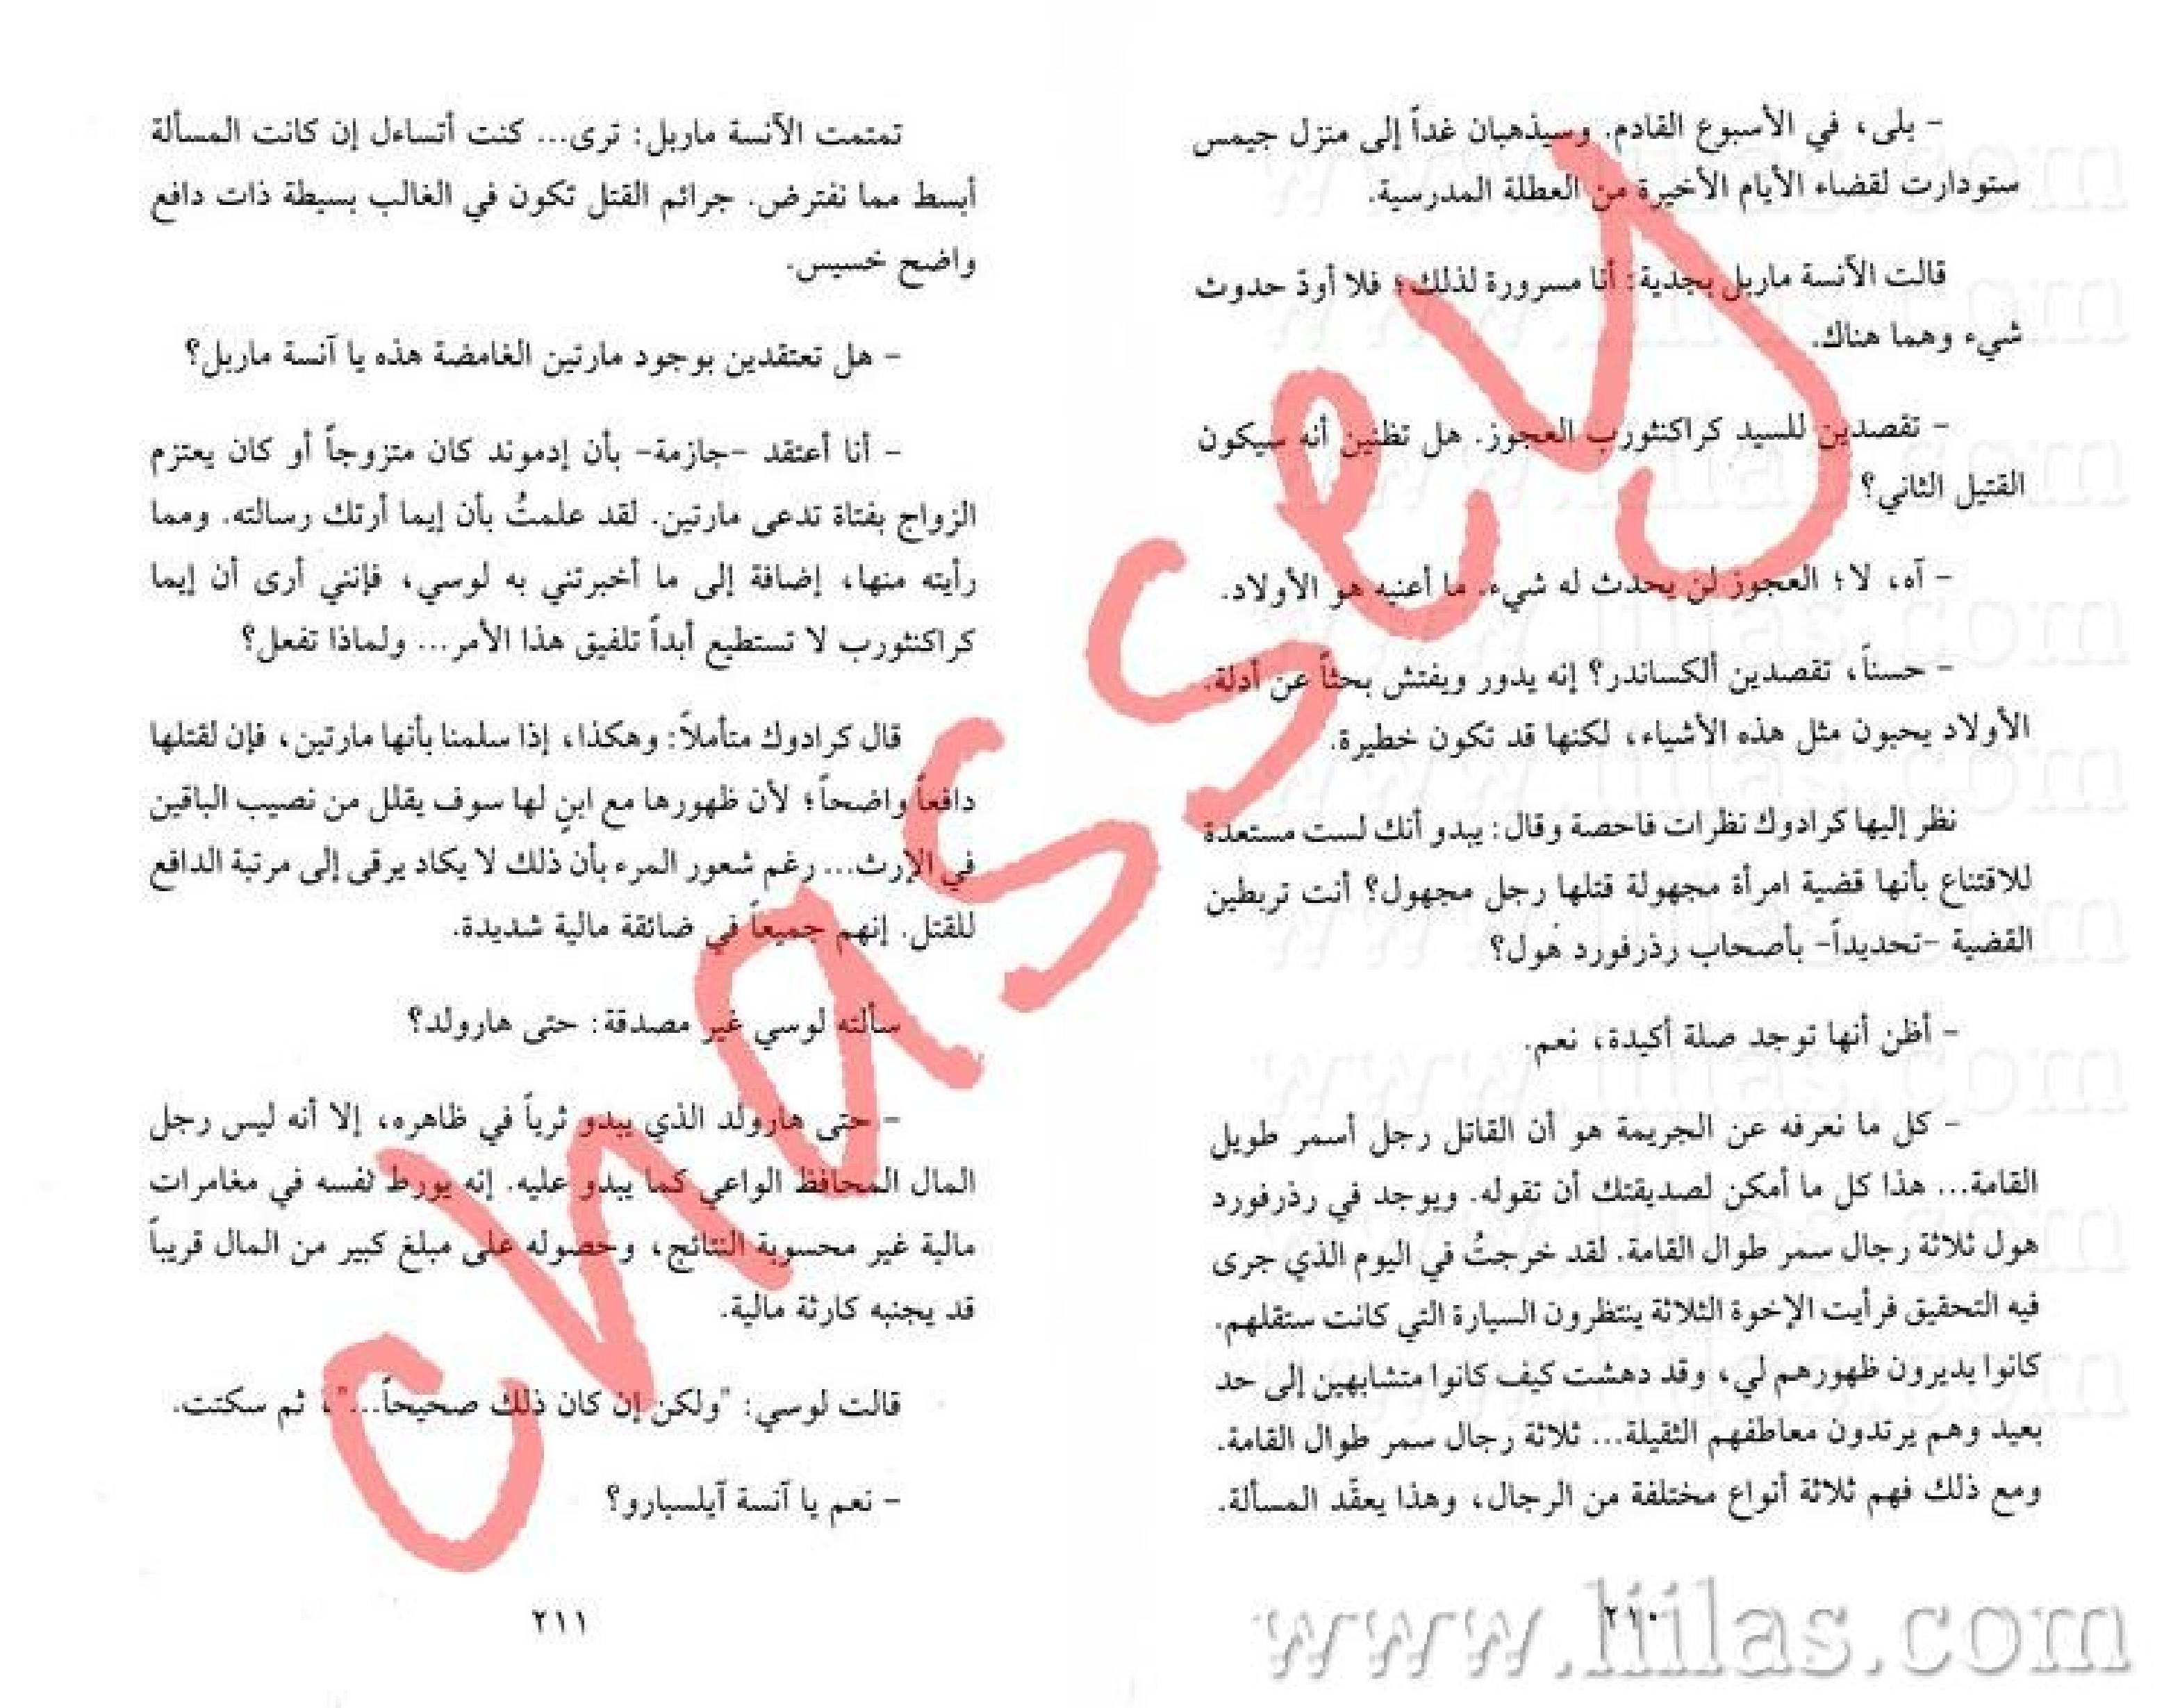 - بلى، في الأسبوع القادم. وسيذهبان غداً إلى منزل جيمس
ستودارت لقضاء الأيام الأخيرة من العطلة المدرسية.
قالت الآنسة ماربل بجدية: أنا مسرورة لذلك؛ فلا أودّ حدوث
شيء وهما هناك.
- تقصدين للسيد كراكنثورب العجوز. هل تظنين أنه سيكون
القتيل الثاني؟
- آه، لا؛ العجوز لن يحدث له شيء. ما أعنيه هو الأولاد.
- حسناً، تقصدين ألكساندر؟ إنه يدور ويفتش بحثاً عن أدلة.
الأولاد يحبون مثل هذه الأشياء، لكنها قد تكون خطيرة.
نظر إليها كرادوك نظرات فاحصة وقال: يبدو أنك لست مستعدة
للاقتناع بأنها قضية امرأة مجهولة قتلها رجل مجهول؟ أنت تربطين
القضية -تحديداً- بأصحاب رذرفورد هُول؟
- أظن أنها توجد صلة أكيدة، نعم.
- كل ما نعرفه عن الجريمة هو أن القاتل رجل أسمر طويل
القامة... هذا كل ما أمكن لصديقتك أن تقوله. ويوجد في رذرفورد
هول ثلاثة رجال سمر طوال القامة. لقد خرجتُ في اليوم الذي جرى
فيه التحقيق فرأيت الإخوة الثلاثة ينتظرون السيارة التي كانت ستقلهم.
كانوا يديرون ظهورهم لي، وقد دهشت كيف كانوا متشابهين إلى حد
بعيد وهم يرتدون معاطفهم الثقيلة... ثلاثة رجال سمر طوال القامة.
ومع ذلك فهم ثلاثة أنواع مختلفة من الرجال، وهذا يعقّد المسألة.
٢١٠
تمتمت الآنسة ماربل: ترى... كنت أتساءل إن كانت المسألة
أبسط مما نفترض. جرائم القتل تكون في الغالب بسيطة ذات دافع
واضح خسيس.
- هل تعتقدين بوجود مارتين الغامضة هذه يا آنسة ماربل؟
- أنا أعتقد -جازمة- بأن إدموند كان متزوجاً أو كان يعتزم
الزواج بفتاة تدعى مارتين. لقد علمتُ بأن إيما أرتك رسالته. ومما
رأيته منها، إضافة إلى ما أخبرتني به لوسي، فإنني أرى أن إيما
كراكنثورب لا تستطيع أبداً تلفيق هذا الأمر... ولماذا تفعل؟
قال كرادوك متأملاً: وهكذا، إذا سلمنا بأنها مارتين، فإن لقتلها
دافعاً واضحاً؛ لأن ظهورها مع ابنٍ لها سوف يقلل من نصيب الباقين
في الإرث... رغم شعور المرء بأن ذلك لا يكاد يرقى إلى مرتبة الدافع
للقتل. إنهم جميعاً في ضائقة مالية شديدة.
سألته لوسي غير مصدقة: حتى هارولد؟
- حتى هارولد الذي يبدو ثرياً في ظاهره، إلا أنه ليس رجل
المال المحافظ الواعي كما يبدو عليه. إنه يورط نفسه في مغامرات
مالية غير محسوبة النتائج، وحصوله على مبلغ كبير من المال قريباً
قد يجنبه كارثة مالية.
قالت لوسي: "ولكن إن كان ذلك صحيحاً..."، ثم سكتت.
- نعم يا آنسة آيلسبارو؟
٢١١
www.liilas.com